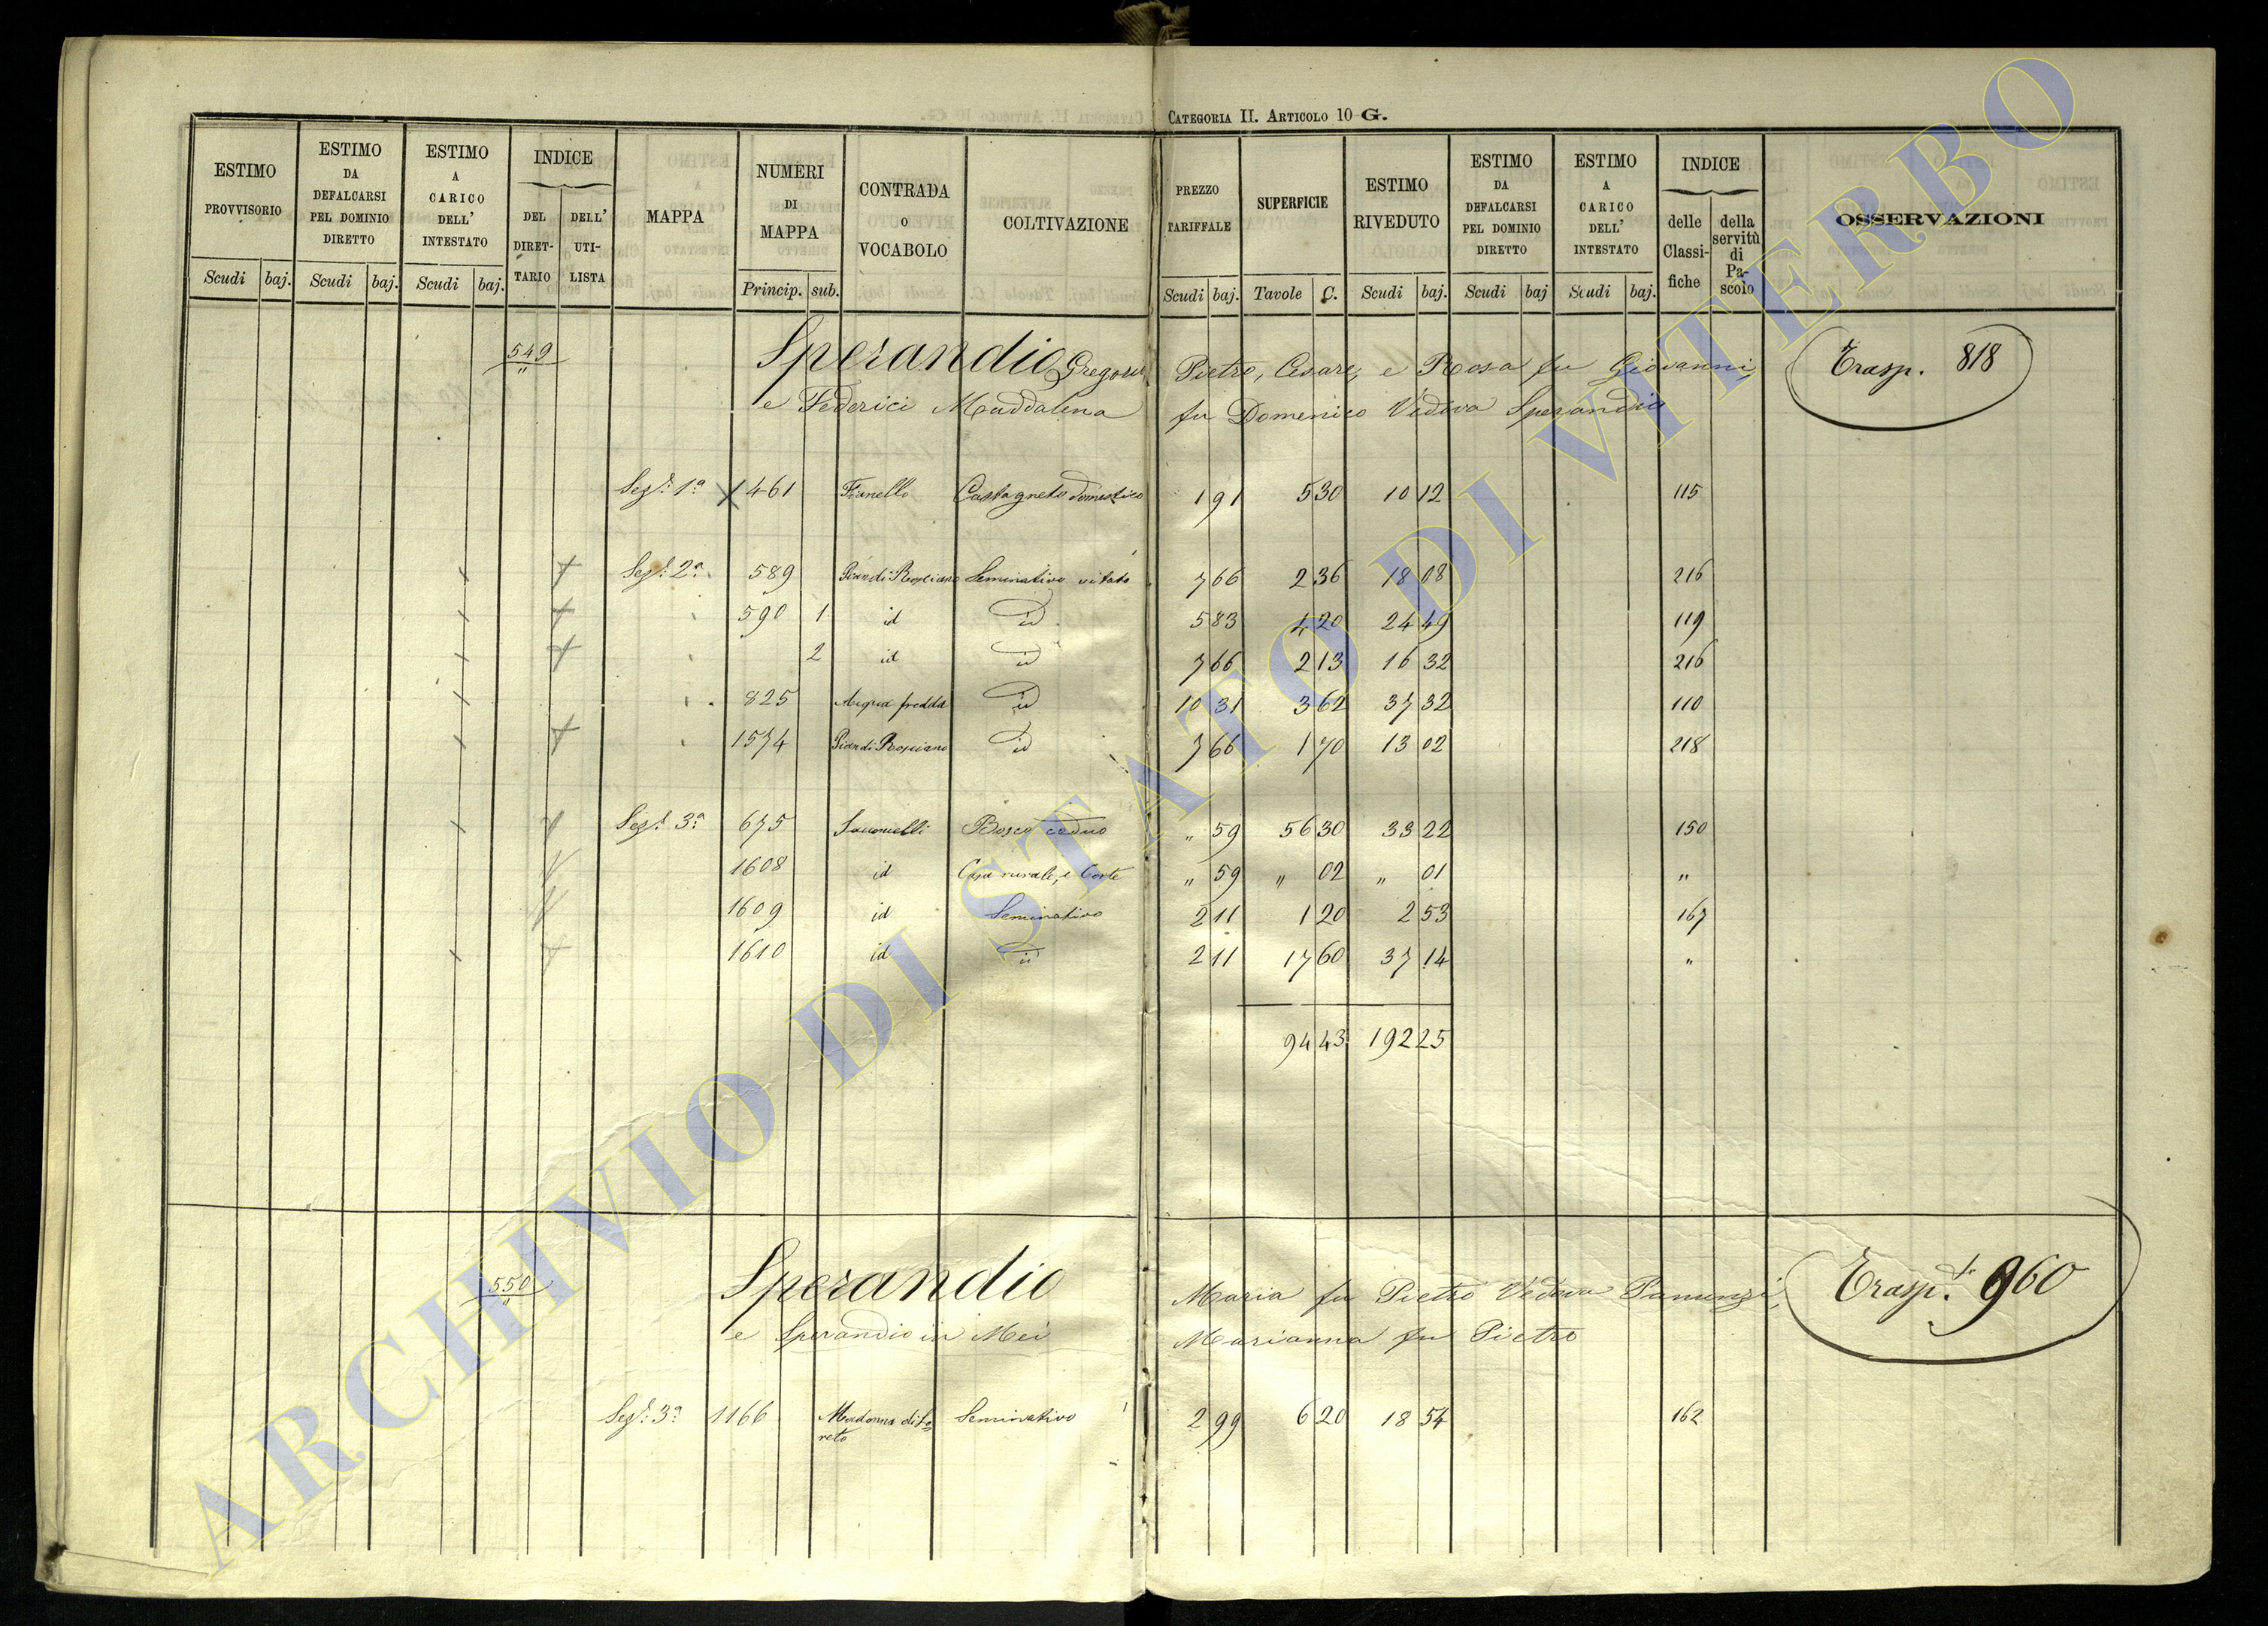 CATEGORIA II. ARTICOLO 10 G.
ESTIMO PROVVISORIO Scudi baj.
ESTIMO DA DEFALCARSI PEL DOMINIO DIRETTO Scudi baj.
ESTIMO A CARICO DELL' INTESTATO Scudi baj.
INDICE DEL DIRETTARIO DELL' UTILISTA
MAPPA
NUMERI DI MAPPA Princip. sub.
CONTRADA o VOCABOLO
COLTIVAZIONE
PREZZO TARIFFALE Scudi baj.
SUPERFICIE Tavole C.
ESTIMO RIVEDUTO Scudi baj.
ESTIMO DA DEFALCARSI PEL DOMINIO DIRETTO Scudi baj
ESTIMO A CARICO DELL' INTESTATO Scudi baj.
INDICE delle Classifiche della servitù di Pascolo
OSSERVAZIONI
549 Sperandio Gregorio Pietro, Cesare, e Rosa fu Giovanni, Trasp. 818
e Federici Maddalena fu Domenico Vedova Sperandio
Segt. 1a 461 Castagneto domestico 1 91 5 30 10 12 115
Segt. 2a 589 Seminativo vitato 7 66 2 36 18 08 216
590 1 id id 5 83 4 20 24 49 119
2 id id 7 66 2 13 16 32 216
825 Acqua fredda id 10 31 3 62 37 32 110
1574 id 7 66 1 70 13 02 218
Segt. 3a 675 Bosco ceduo " 59 56 30 33 22 150
1608 id Casa rurale, e Corte " 59 " 02 " 01 "
1609 id Seminativo 2 11 1 20 2 53 167
1610 id id 2 11 17 60 37 14 "
94 43 192 25
550 Sperandio Maria fu Pietro Vedova Panunzi, Trasp.te 960
e Sperandio in Mei Marianna fu Pietro
Segt. 3a 1166 Madonna di Loreto Seminativo 2 99 6 20 18 54 162
ARCHIVIO DI STATO DI VITERBO